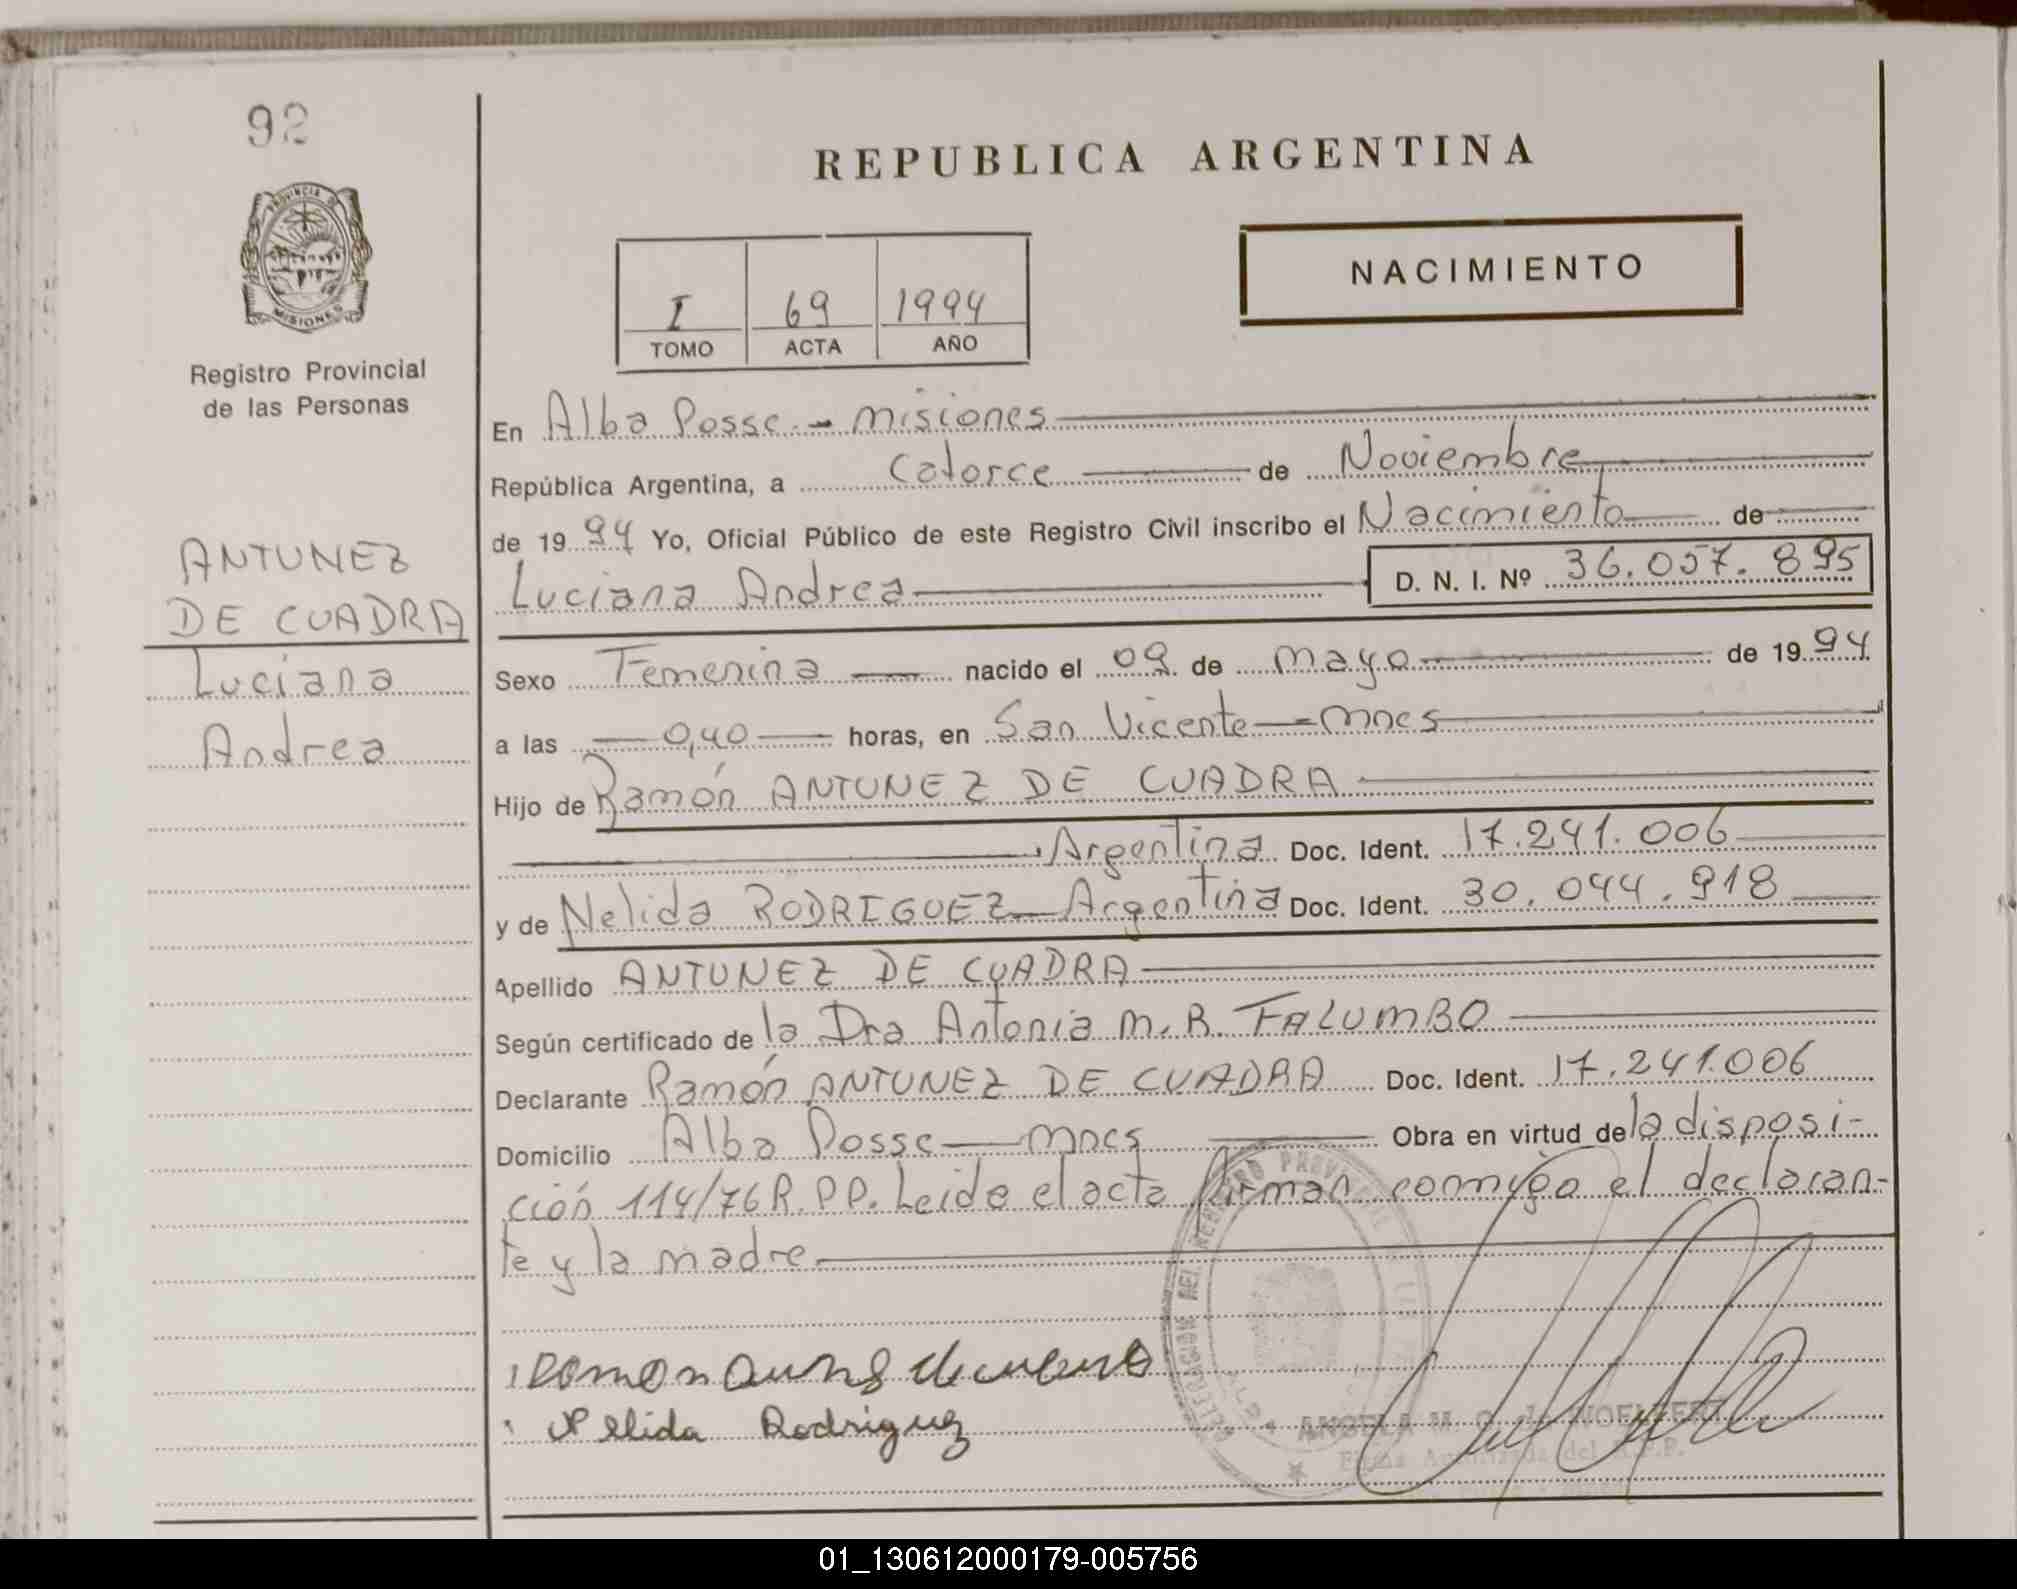 92
REPUBLICA ARGENTINA
PROVINCIA DE
MISIONES
NACIMIENTO
I 69 1994
TOMO ACTA AÑO
Registro Provincial
de las Personas
ANTUNEZ
DE CUADRA
Luciana
Andrea
En Alba Posse - Misiones
República Argentina, a Catorce de Noviembre
de 1994 Yo, Oficial Público de este Registro Civil inscribo el Nacimiento de
Luciana Andrea D. N. I. Nº 36.057.895
Sexo Femenina nacido el 09 de mayo de 1994
a las 0,40 horas, en San Vicente - Mnes
Hijo de Ramón ANTUNEZ DE CUADRA
Argentina Doc. Ident. 17.241.006
y de Nelida RODRIGUEZ Argentina Doc. Ident. 30.044.918
Apellido ANTUNEZ DE CUADRA
Según certificado de la Dra Antonia M. R. FALUMBO
Declarante Ramón ANTUNEZ DE CUADRA Doc. Ident. 17.241.006
Domicilio Alba Posse Mnes Obra en virtud de la disposi-
ción 114/76 R.P.P. Leida el acta firman conmigo el declaran-
te y la madre
Nelida Rodriguez
ANGELA M.
01_130612000179-005756